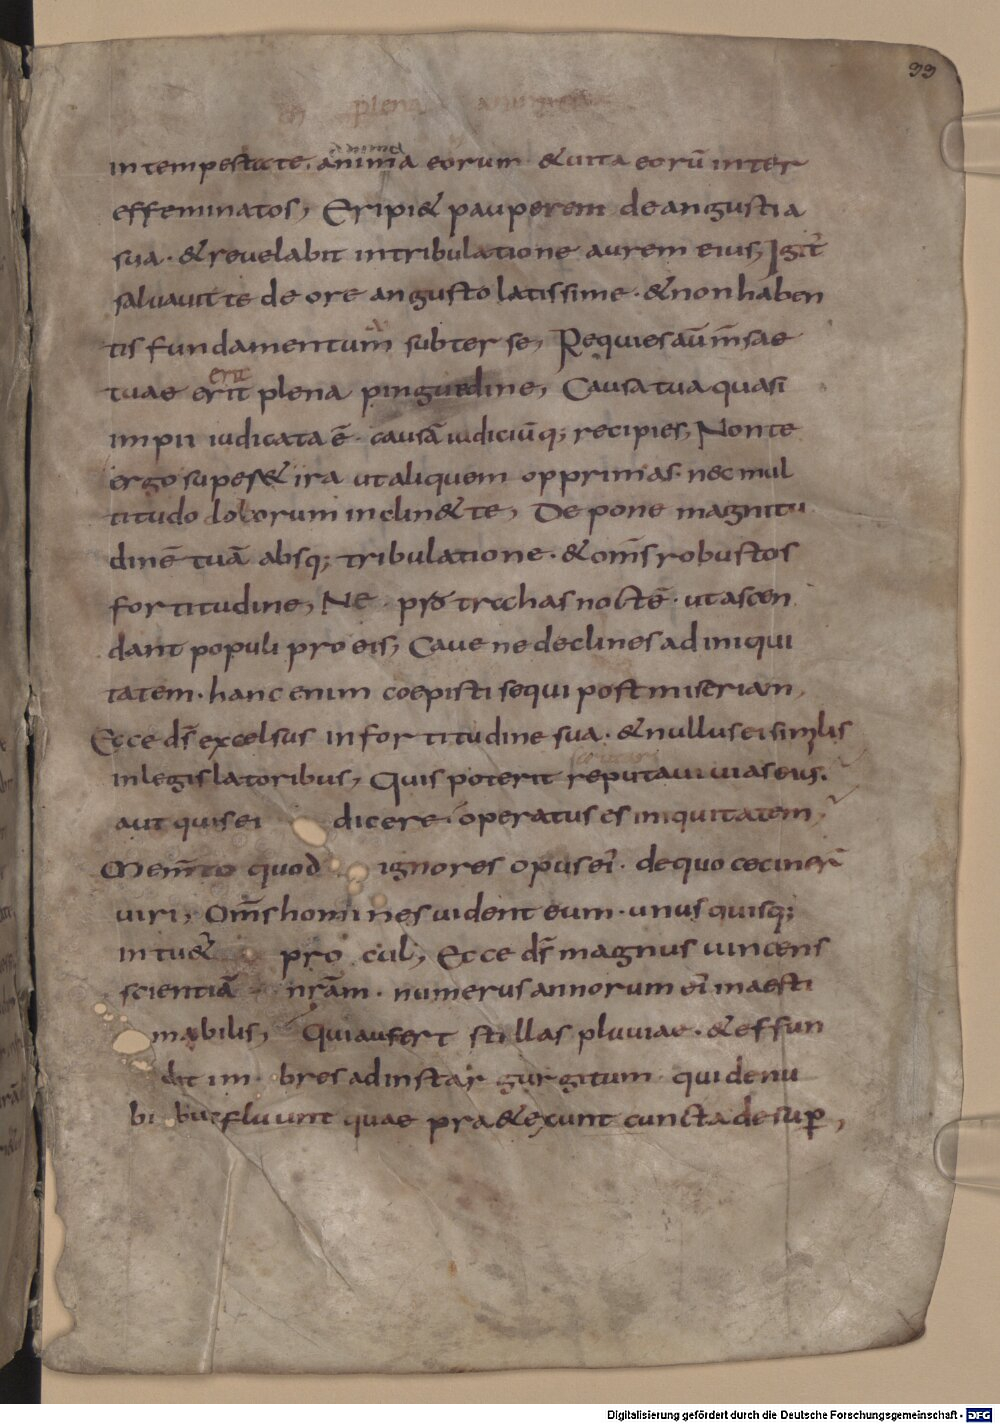 99
plena
in tempestate. anima eorum & uita eorū inter
effeminatos, Eripi& pauperem de angustia
sua · & reuelabit in tribulatione aurem eius, Igit̄
saluauit te de ore angusto latissime · & non haben
tis fundamentum subter se, Requies aū m̄sae
tuae erit plena pinguedine, Causa tua quasi
erit
impii iudicata ē · causā iudiciūq; recipies, Non te
ergo super& ira ut aliquem opprimas · nec mul
titudo donorum inclin& te, Depone magnitu
dinē tuā absq; tribulatione · & om̄s robustos
fortitudine, Ne trahas noctē · ut ascen
dant populi pro eis, Caue ne declines ad iniqui
tatem · hanc enim coepisti sequi post miseriam,
Ecce d̄s excelsus in fortitudine sua · & nullus ei similis
in legislatoribus, Quis poterit uias eius.
aut quis ei dicere operatus es iniquitatem,
Mem̄to quod ignores opus ei᷒ · de quo cecineř
uiri, Om̄s homines uident eum · unusquisq;
intu&ur procul, Ecce d̄s magnus uincens
scientiā nr̄am · numerus annorum ei᷒ inaesti
mabilis, Qui aufert stillas pluuiae · & effun
dit imbres ad instar gurgitum qui de nu
bibus fluunt quae pra&exunt cuncta desuꝑ,
Digitalisierung gefördert durch die Deutsche Forschungsgemeinschaft - DFG